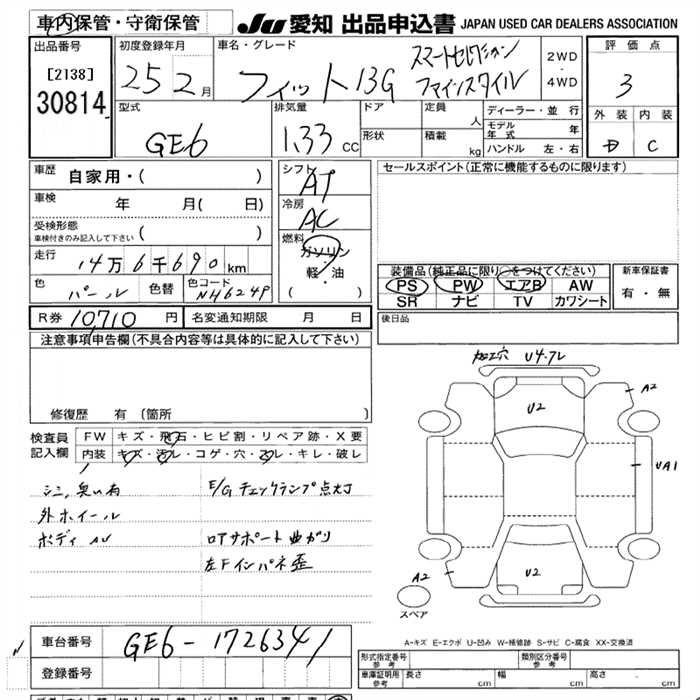 車内保管・守衛保管
JU 愛知 出品申込書 JAPAN USED CAR DEALERS ASSOCIATION
出品番号
[2138]
30814
初度登録年月
25 2月
車名・グレード
フィット 13G スマートセレクション
ファインスタイル
2WD
・
4WD
評価点
3
外装 内装
D C
型式
GE6
排気量
1.33 cc
ドア
形状
定員
人
積載
kg
ディーラー・並行
モデル年式 年
ハンドル 左・右
車歴 自家用・( )
車検 年 月( 日)
受検形態
車検付きのみ記入して下さい ( )
走行 14万6千690km
色 パール 色替 色コード NH624P
シフト AT
冷房 AC
燃料 ガソリン
軽・油
( )
セールスポイント(正常に機能するものに限ります)
装備品(純正品に限り○をつけてください)
PS PW エアB AW
SR ナビ TV カワシート
新車保証書
有・無
後日品
R券 10,710 円 名変通知期限 月 日
注意事項申告欄(不具合内容等は具体的に記入して下さい)
修復歴 有(箇所 )
検査員
記入欄
FW キズ・飛石・ヒビ割・リペア跡・X要
内装 キズ・汚レ・コゲ・穴・スレ・キレ・破レ
シミ,臭い有
外ホイール
ボディ AU
E/Gチェックランプ点灯
ロアサポート曲がり
左Fインパネ歪
加工穴 U4.アレ
A2
U2
UA1
U2
A2
スペア
A-キズ E-エクボ U-凹み W-補修跡 S-サビ C-腐食 XX-交換済
車台番号 GE6-1726341
登録番号
形式指定番号
参考
類別区分番号
参考
車庫証明用
参考
長さ cm 幅 cm 高さ cm